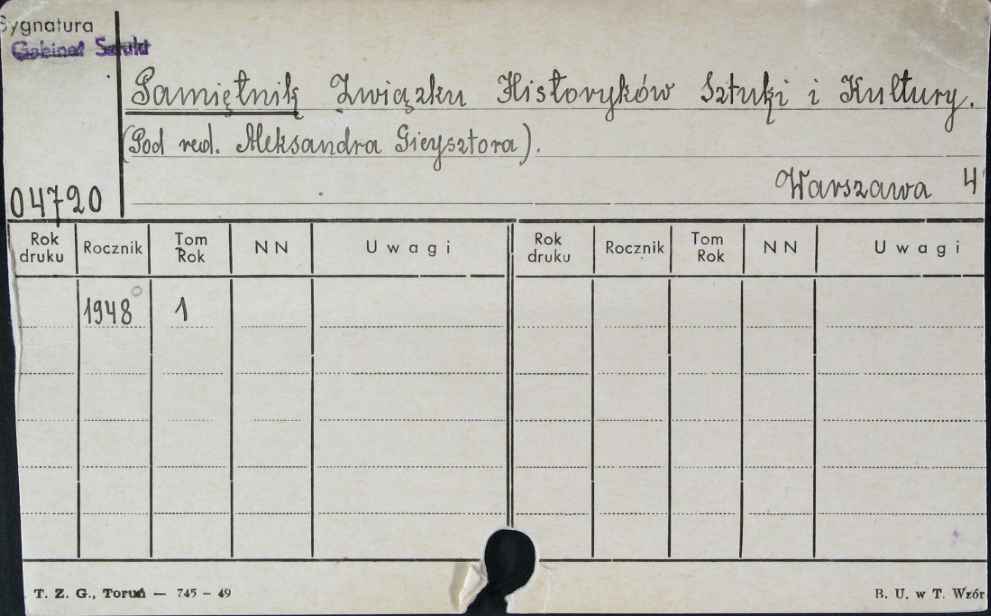 Sygnatura
Gabinet Sztuki
Pamiętnik Związku Historyków Sztuki i Kultury.
(Pod red. Aleksandra Gieysztora).
Warszawa 4
04720
Rok druku Rocznik Tom Rok NN Uwagi Rok druku Rocznik Tom Rok NN Uwagi
1948 1
T. Z. G., Toruń — 745 - 49 B. U. w T. Wzór